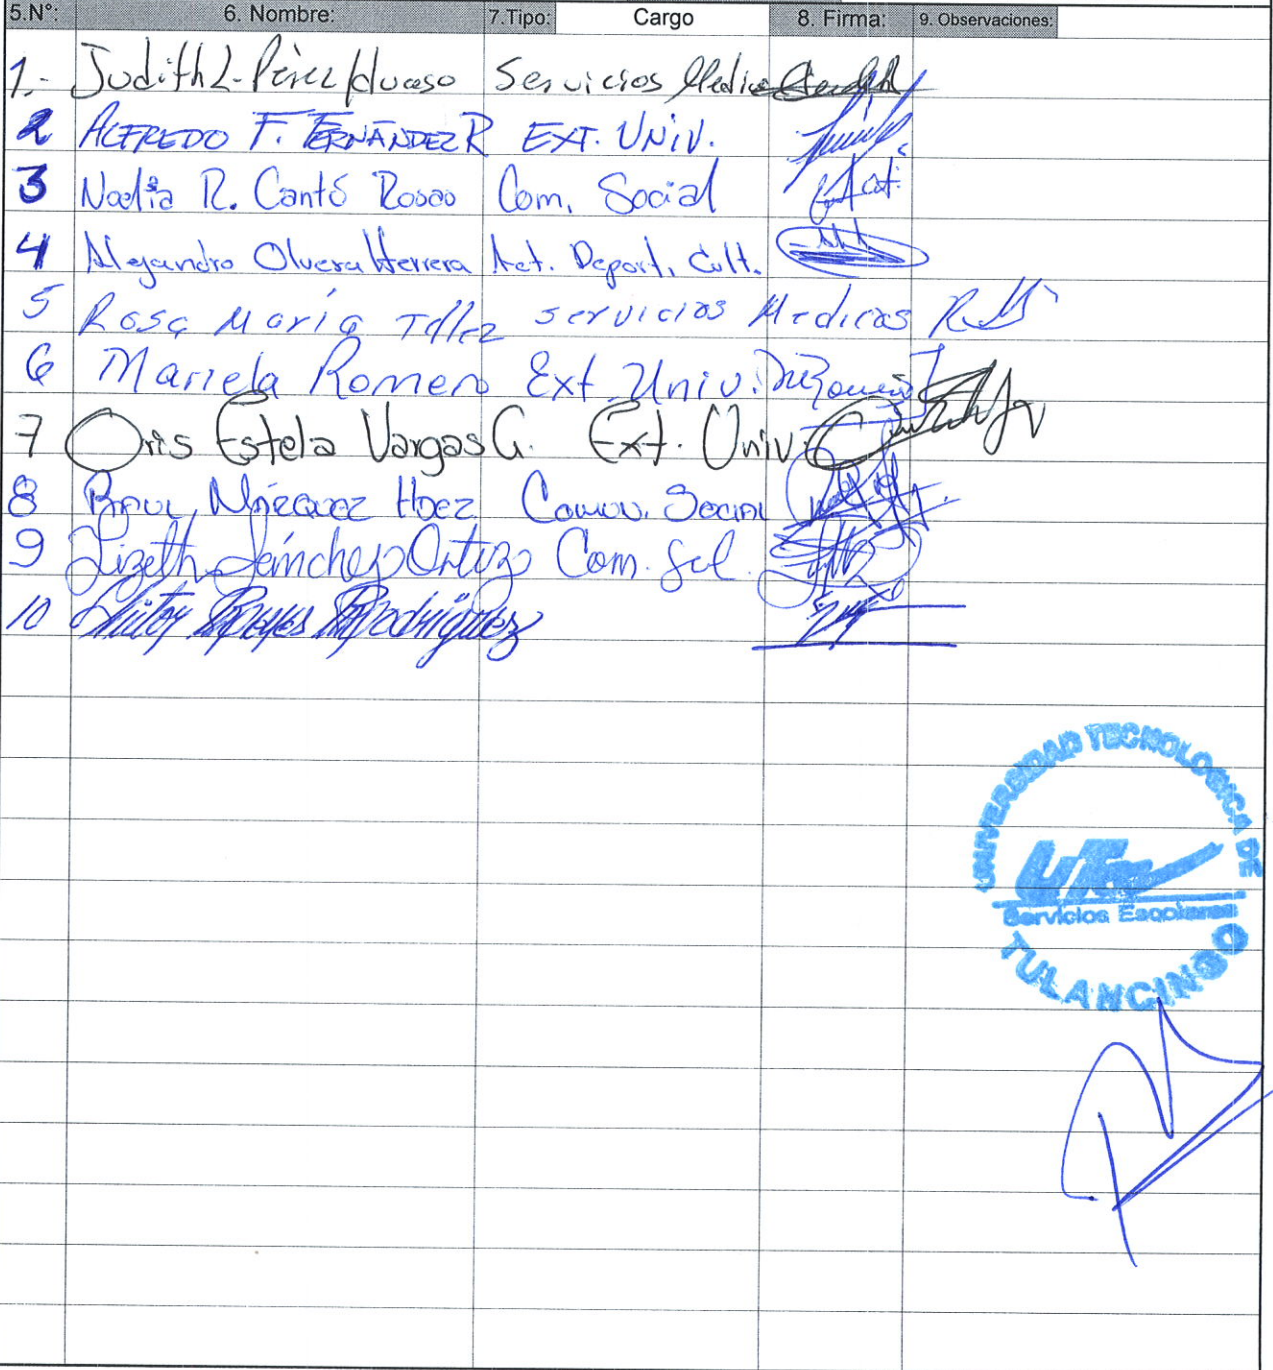 5.N°: 6. Nombre: 7.Tipo: Cargo 8. Firma: 9. Observaciones:
1.- Judith L. Pérez Servicios Medico
2 ALFREDO F. FERNÁNDEZ R EXT. UNIV.
3 Nadia R. Cantó Com. Social
4 Alejandro Olvera Herrera Act. Deport. Cult.
5 Rosa María Téllez servicios Medicos
6 Mariela Romero Ext. Univ.
7 Oris Estela Vargas G. Ext. Univ.
8 Márquez Hdez Comun. Social
9 Lizeth Sánchez Ortiz Com. Scl.
10 Reyes Rodríguez
UNIVERSIDAD TECNOLOGICA DE
UTec
Servicios Escolares
TULANCINGO